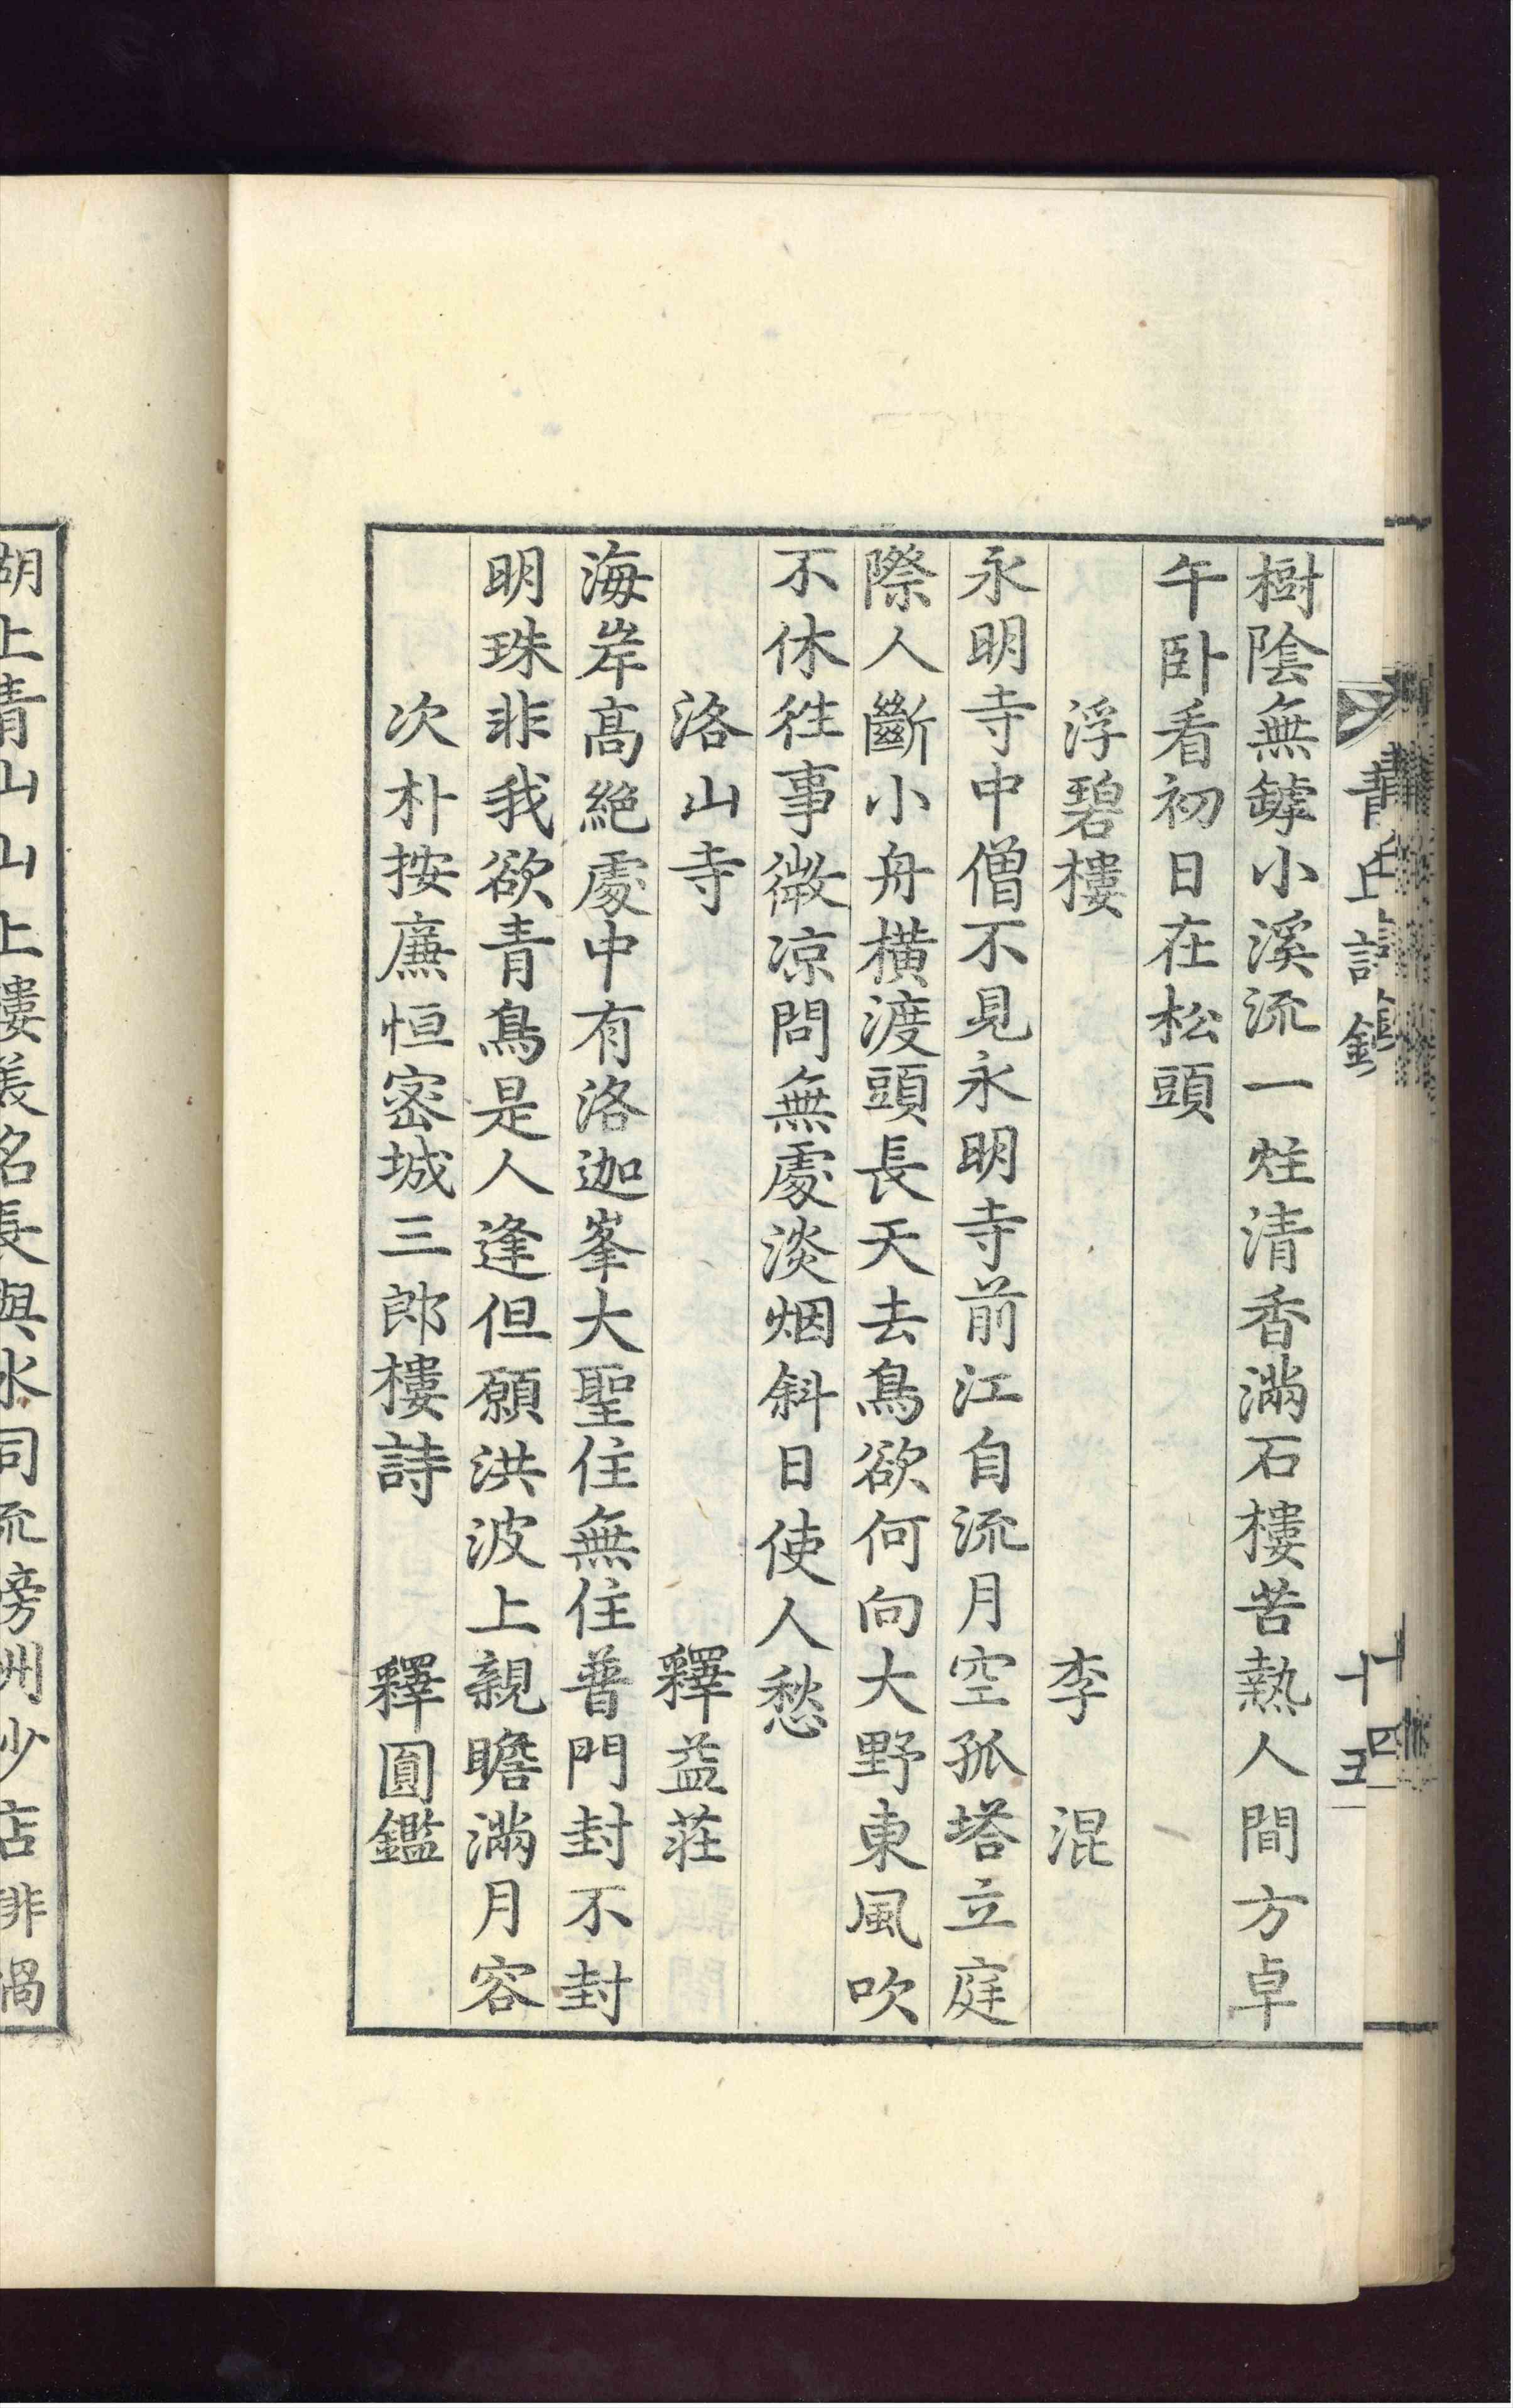 樹陰無罅小溪流一炷清香滿石樓苦熱人間方卓
午卧看初日在松頭
浮碧樓 李混
永明寺中僧不見永明寺前江自流月空孤塔立庭
際人斷小舟橫渡頭長天去鳥欲何向大野東風吹
不休徃事微凉問無處淡烟斜日使人愁
洛山寺 釋益莊
海岸高絶處中有洛迦峯大聖住無住普門封不封
明珠非我欲青鳥是人逢但願洪波上親瞻滿月容
次朴按廉恒密城三郎樓詩 釋圓鑑
湖上青山山上樓羙名長與水同流傍州沙店